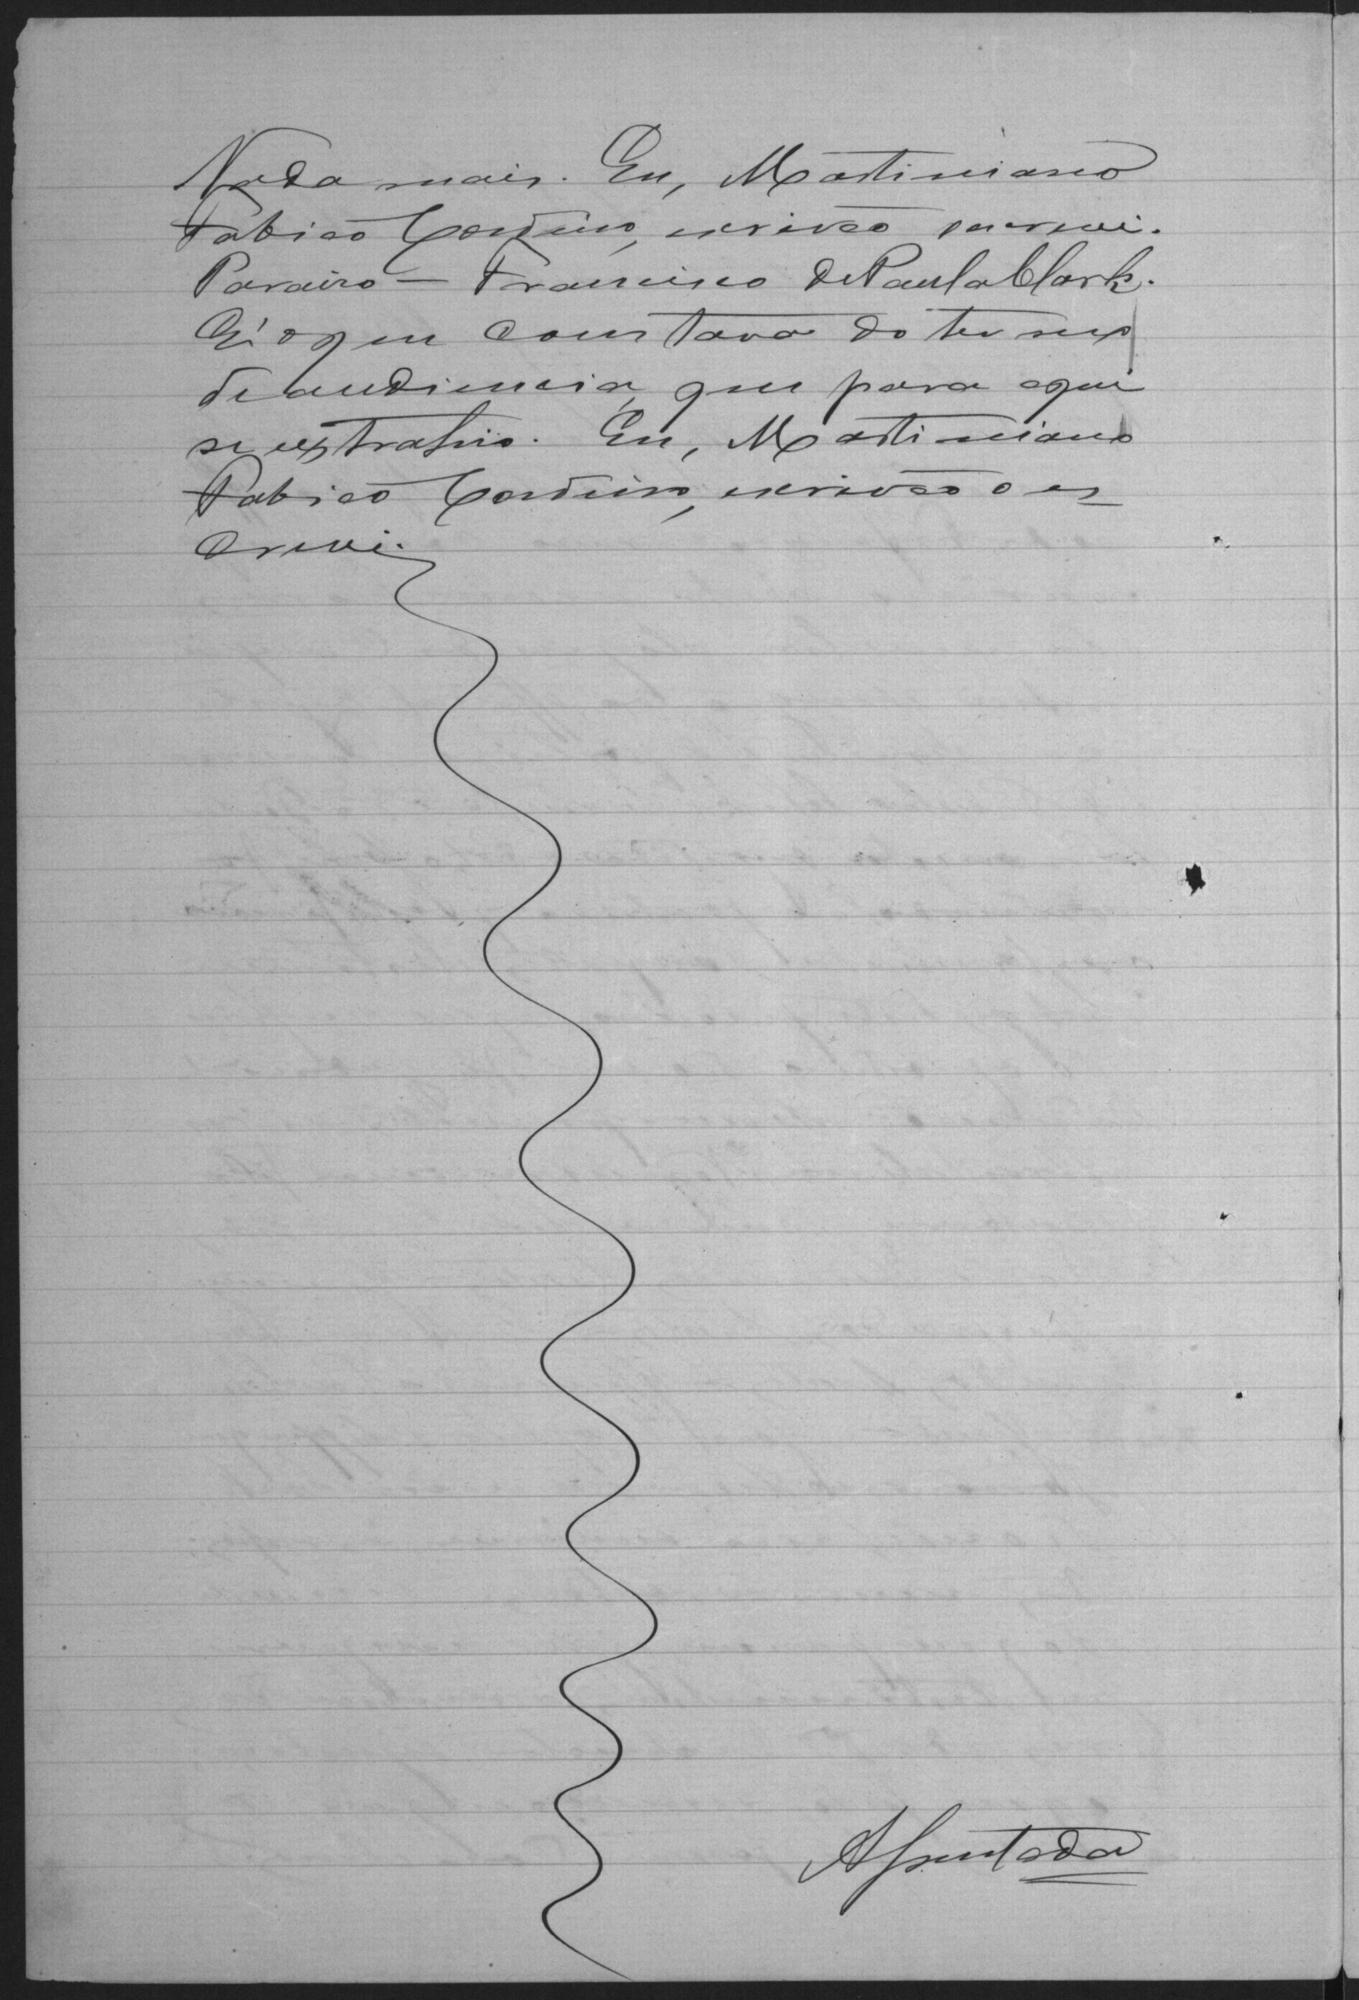 Nada mais. Eu, Martiniano
Fabião Cordeiro, escrivão escrevi.
Paraizo — Francisco de Paula Clark.
E' o que constava do termo
de audiencia, que para aqui
se extrahio. Eu, Martiniano
Fabião Cordeiro, escrivão o es
crevi.
A juntada